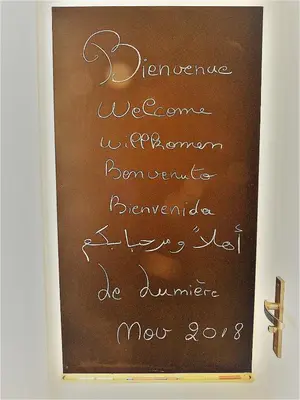 Bienvenue
Welcome
Willkomen
Benvenuto
Bienvenida
أهلاً ومرحبا بكم
de Lumière
Nov 2018